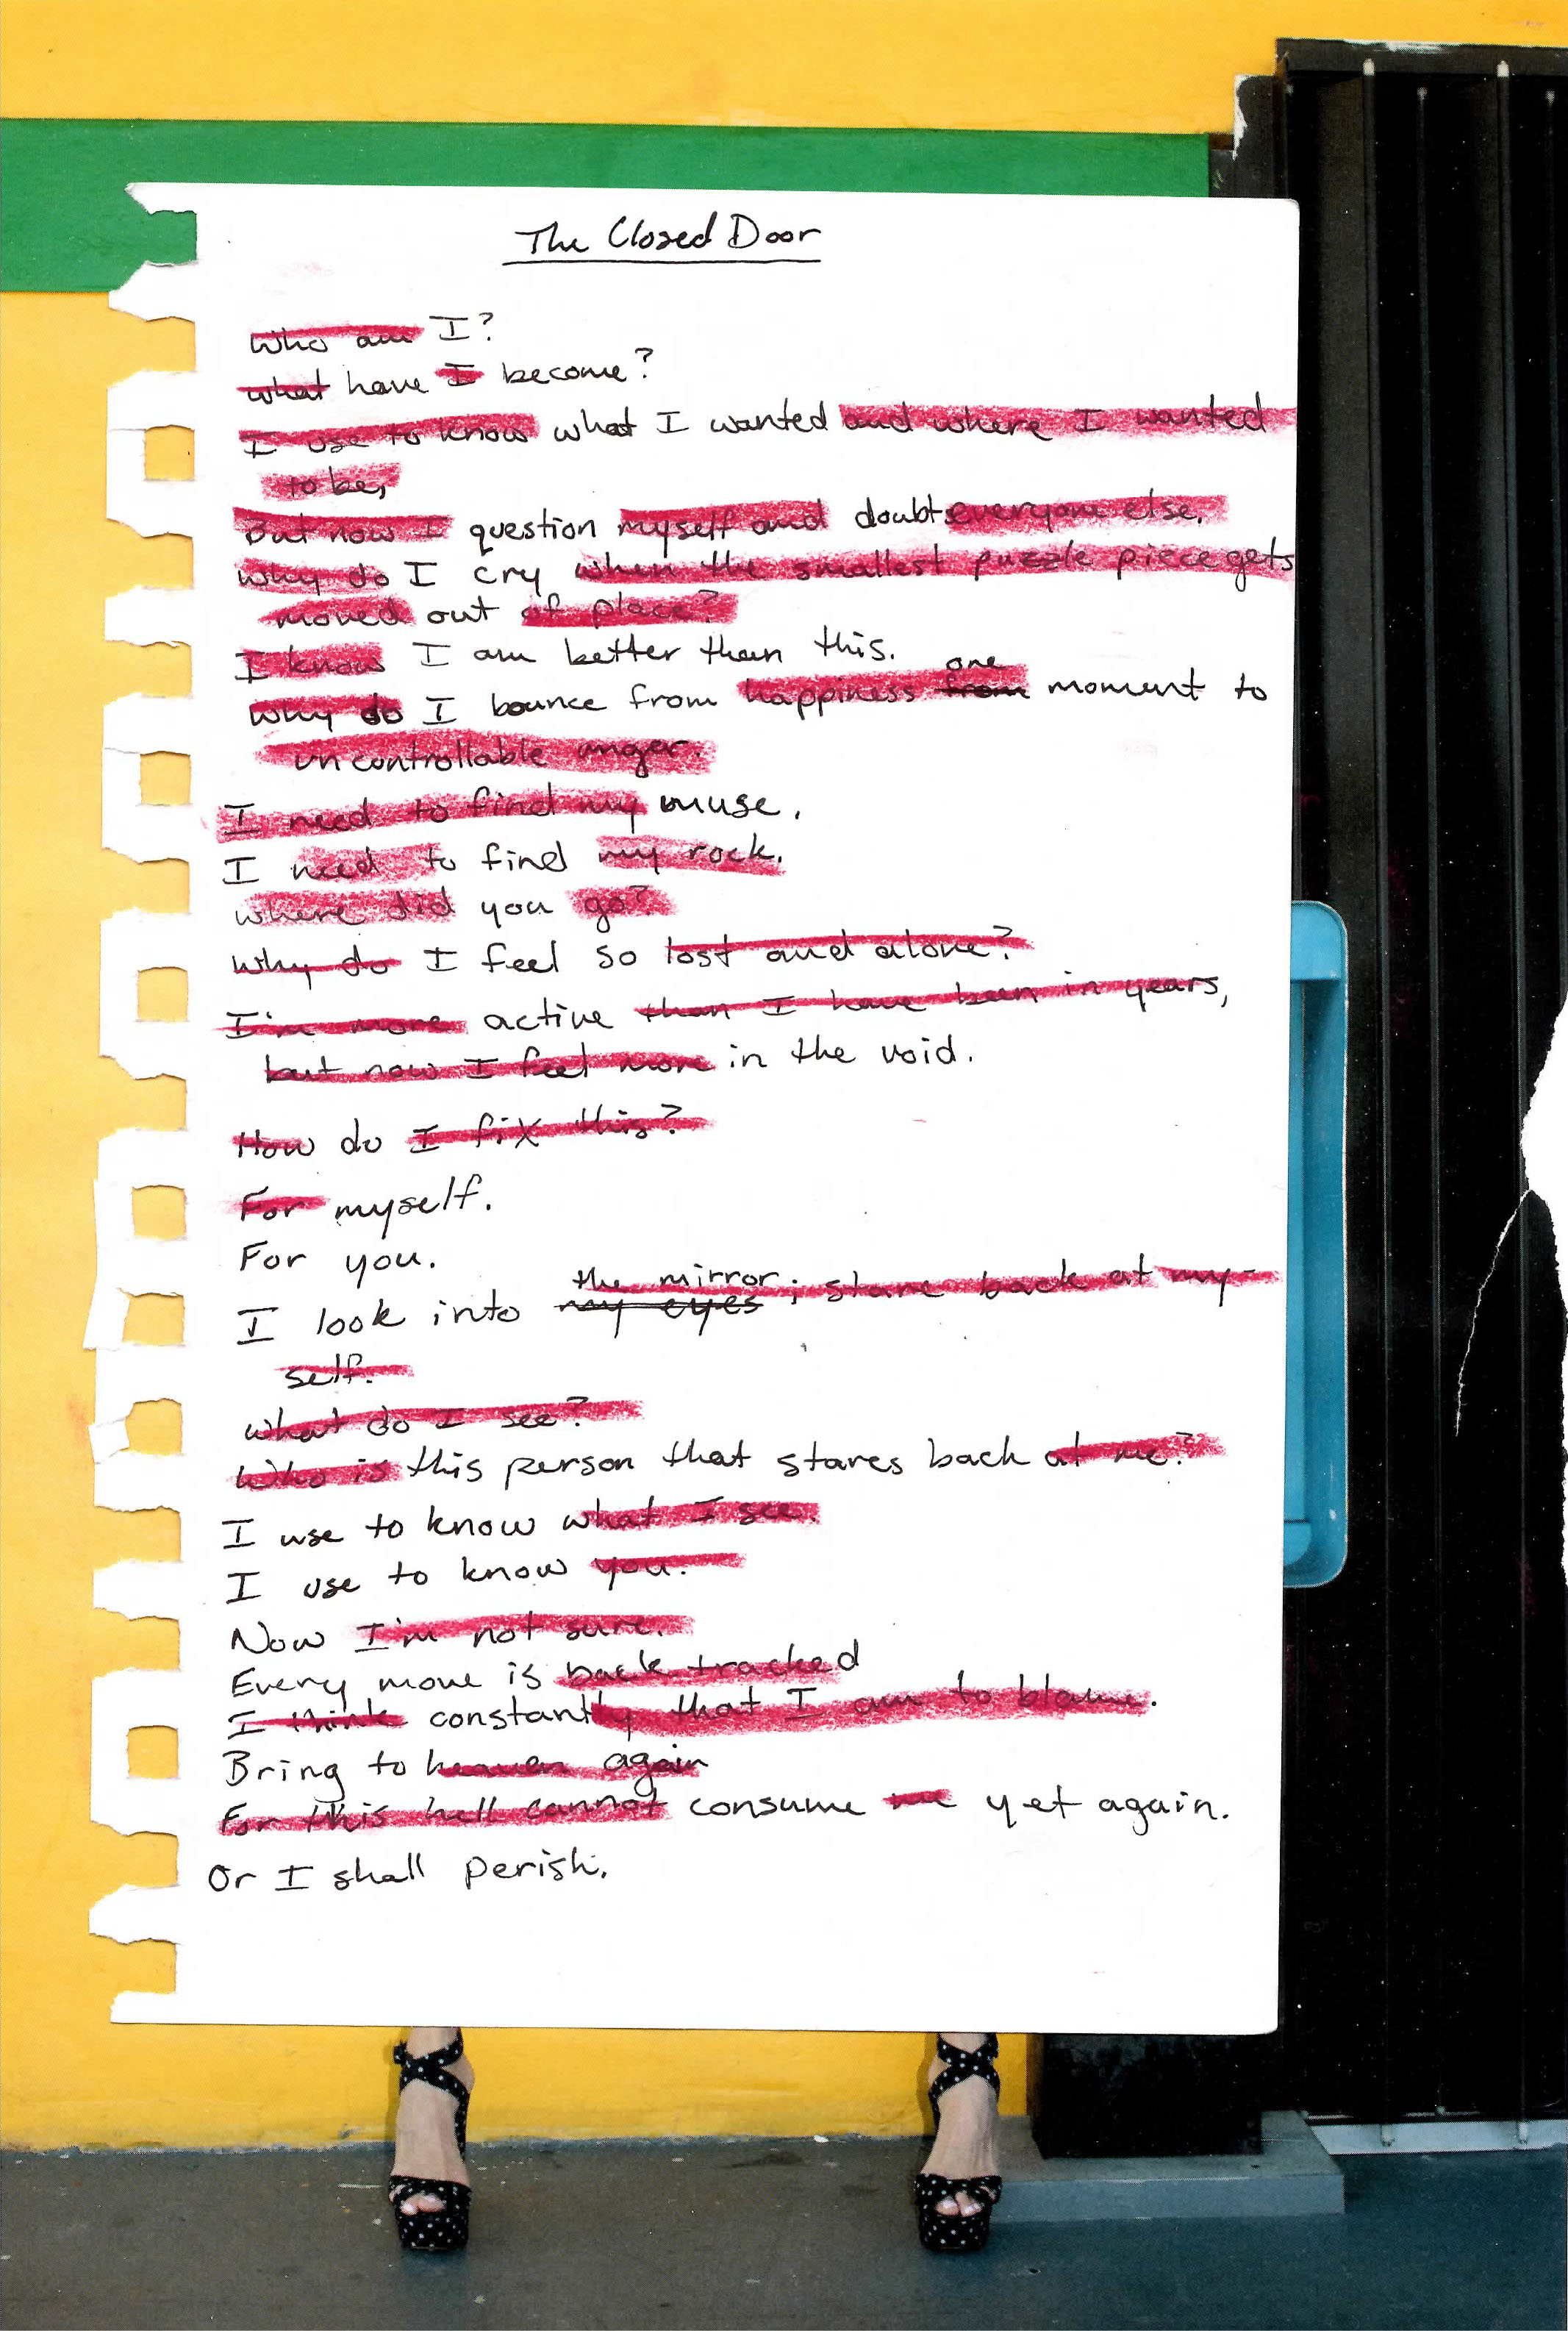 The Closed Door
Who am I?
What have I become?
I use to know what I wanted and where I wanted
to be,
But now I question myself and doubt everyone else.
Why do I cry when the smallest puzzle piece gets
moved out of place?
I know I am better than this.
one
Why do I bounce from happiness from moment to
uncontrollable anger.
I need to find my muse.
I need to find my rock.
Where did you go?
Why do I feel so lost and alone?
I'm more active than I have been in years,
but now I feel more in the void.
How do I fix this?
For myself.
For you.
the mirror; stare back at my-
I look into my eyes
self.
What do I see?
Who is this person that stares back at me?
I use to know what I see.
I use to know you.
Now I'm not sure.
Every move is back tracked
I think constantly that I am to blame.
Bring to heaven again
For this hell cannot consume me yet again.
Or I shall perish.